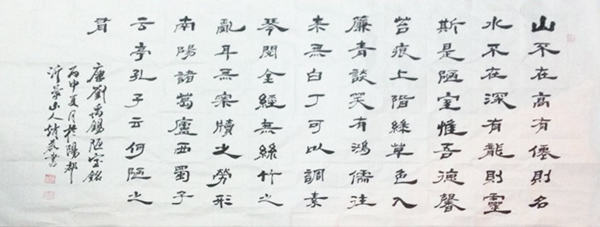 山不在高有僊則名
水不在深有龍則靈
斯是陋室惟吾德馨
苔痕上階綠草色入
簾青談笑有鴻儒往
來無白丁可以調素
琴閱金經無絲竹之
亂耳無案牘之勞形
南陽諸葛廬西蜀子
云亭孔子云何陋之
有
唐劉禹錫陋室銘
丙申夏月於陽都
沂蒙山人書